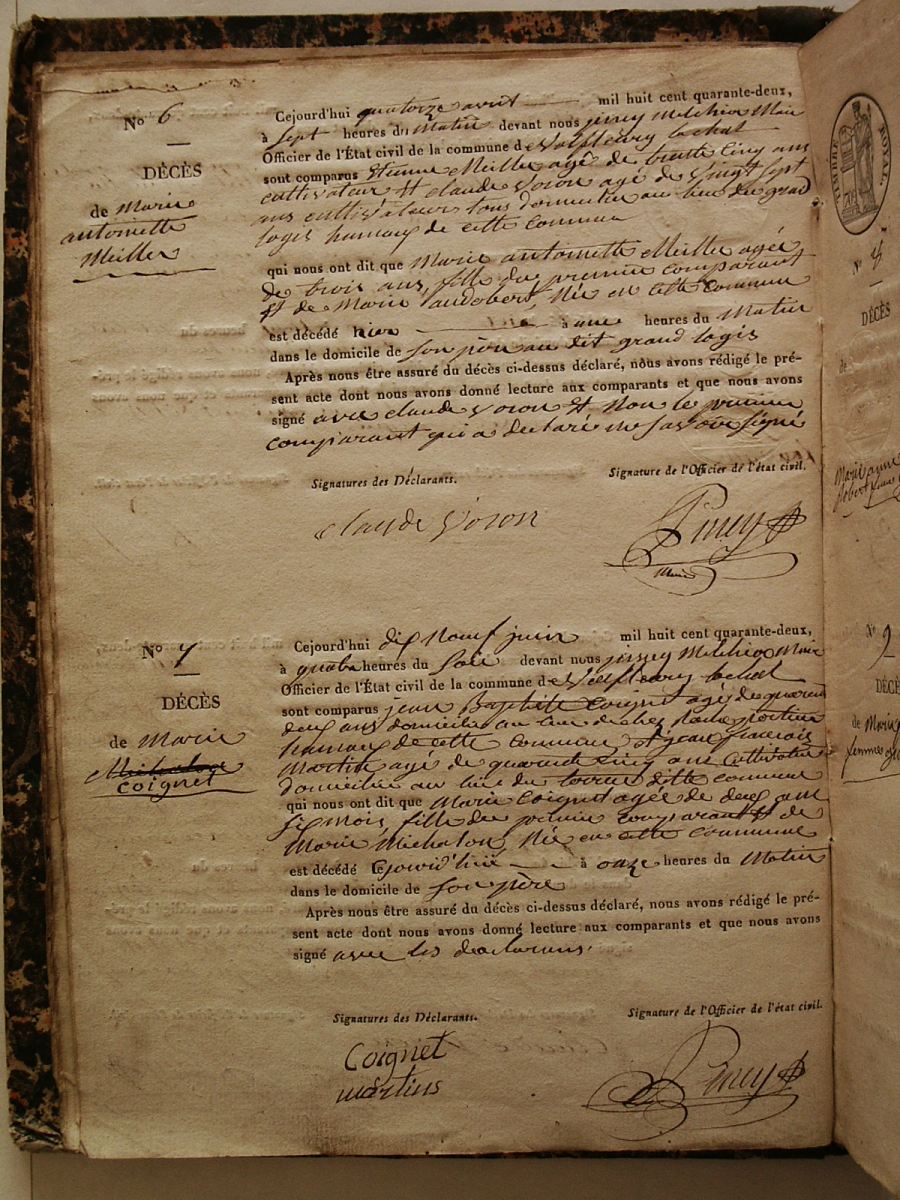 No 6
DÉCÈS
de Marie
antoinette
Meiller
Cejourd'hui quatorze avril mil huit cent quarante-deux,
à sept heures du Matin devant nous piney Melchior Maire
Officier de l'État civil de la commune de Valfleury le chat
sont comparus Etienne Meiller agé de trente cinq ans
cultivateur et claude voron agé de vingt sept
ans cultivateur tous domicilié au lieu du grand
logis hameau de cette commune
qui nous ont dit que Marie antoinette Meiller agée
de trois ans, fille du premier comparant
et de Marie audobert Née en cette commune
est décédé hier à une heures du Matin
dans le domicile de son père au dit grand logis
Après nous être assuré du décès ci-dessus déclaré, nous avons rédigé le pré-
sent acte dont nous avons donné lecture aux comparants et que nous avons
signé avec claude voron et Non le premier
comparant qui a declaré ne savoir signé
Signatures des Déclarants.
Signature de l'Officier de l'état civil.
claude voron
Piney
Maire
No 7
DÉCÈS
de Marie
Michalon
Coignet
Cejourd'hui dix Neuf juin mil huit cent quarante-deux,
à quatre heures du Soir devant nous piney Melchior Maire
Officier de l'État civil de la commune de Valfleury le chat
sont comparus jean Baptiste Coignet agé de quarente
deux ans domicilié au lieu de chez
hameau de cette commune et jean francois
Martin agé de quarante cinq ans Cultivateur
domicilié au lieu de dite commune
qui nous ont dit que Marie Coignet agée de deux ans
six mois, fille du premier comparant et de
Marie Michalon, Née en cette commune
est décédé Cejourd'hui à onze heures du Matin
dans le domicile de son père
Après nous être assuré du décès ci-dessus déclaré, nous avons rédigé le pré-
sent acte dont nous avons donné lecture aux comparants et que nous avons
signé avec les declarans.
Signatures des Déclarants.
Signature de l'Officier de l'état civil.
Coignet
martins
Piney
TIMBRE ROYAL.
No 8
DÉCÈS
de
Marie anne
No 9
DÉCÈS
de Marie
femme